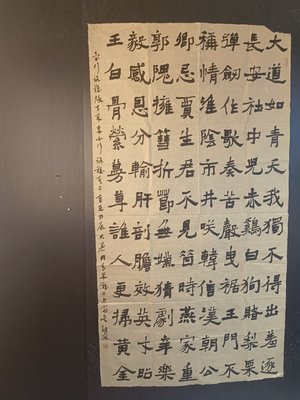 大道如青天我獨不得出羞逐
長安社中兒赤雞白狗賭梨栗
彈劍作歌奏苦聲曳裾王門不
稱情淮陰市井咲韓信漢朝公
卿忌賈生君不見昔時燕家重
郭隗擁篲折節無嫌猜劇辛樂
毅感恩分輸肝剖膽效英才昭
王白骨縈蔓草誰人更掃黃金